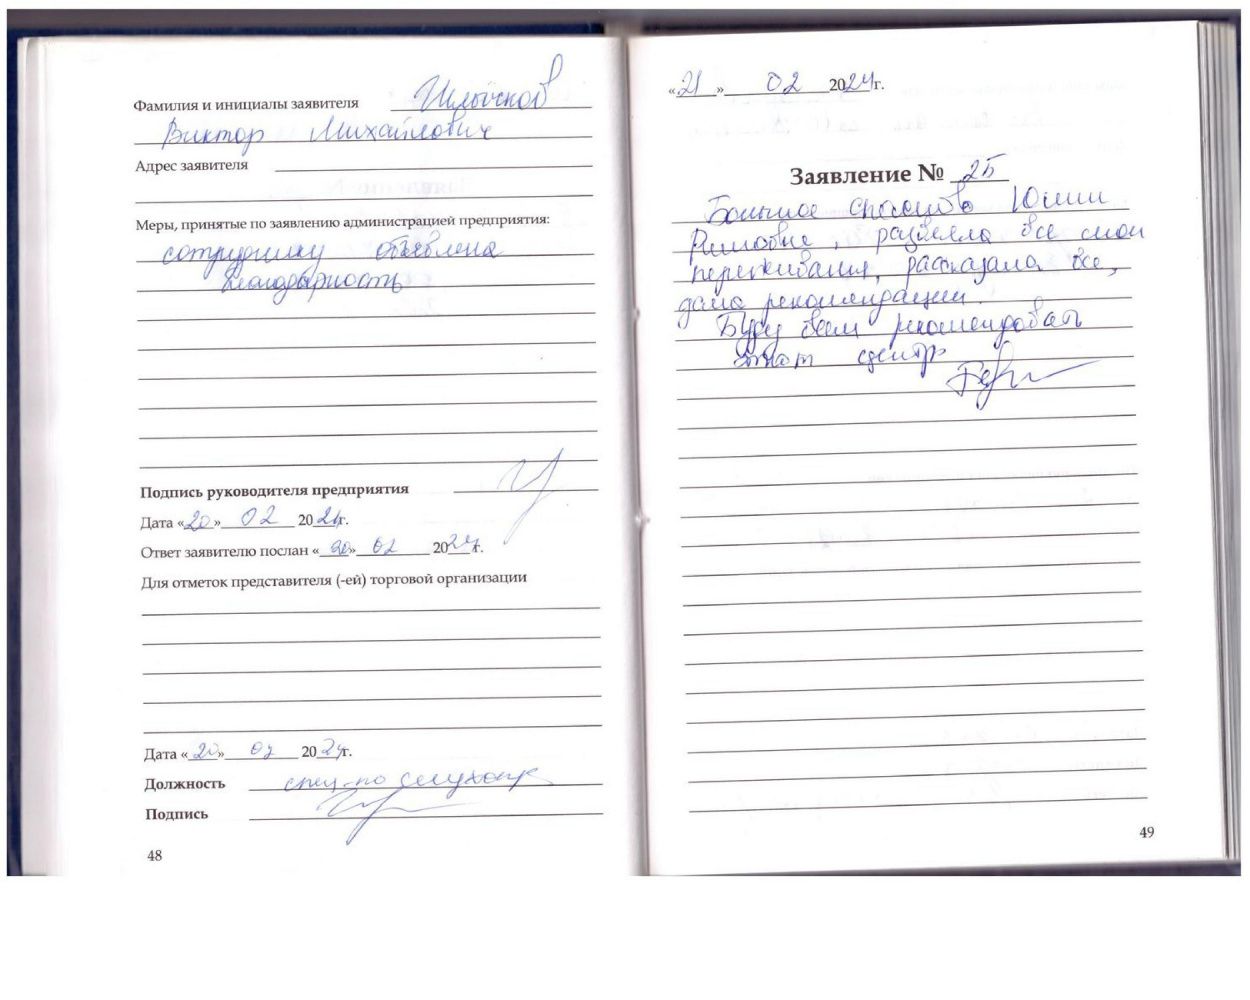 Фамилия и инициалы заявителя
Виктор Михайлович
Адрес заявителя
Меры, принятые по заявлению администрацией предприятия:
сотруднику объявлена
благодарность
Подпись руководителя предприятия
Дата «20» 02 2024г.
Ответ заявителю послан «20» 02 2024г.
Для отметок представителя (-ей) торговой организации
Дата «20» 02 2024г.
Должность спец. по слухопр
Подпись
48
«21» 02 2024г.
Заявление № 25
Большое спасибо Юлии
Римовне, развеяла все мои
переживания, рассказала все,
дала рекомендации.
Буду всем рекомендовать
этот центр
49